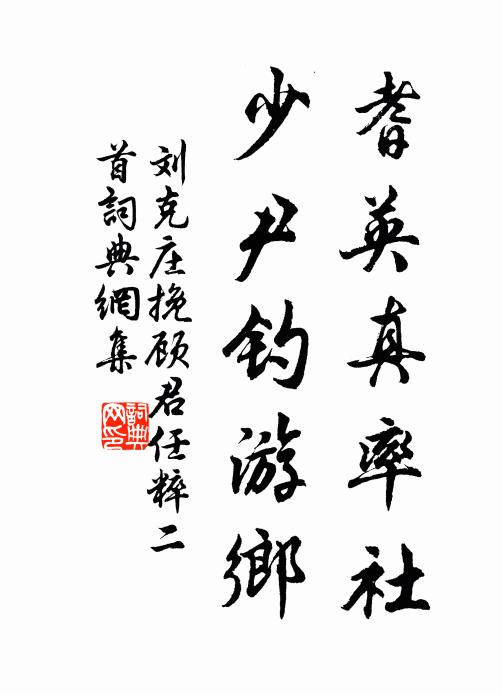 耆英真率社
少尹钓游鄉
刘克庄挽顾君任粹二
首詞典網集
詞典网印